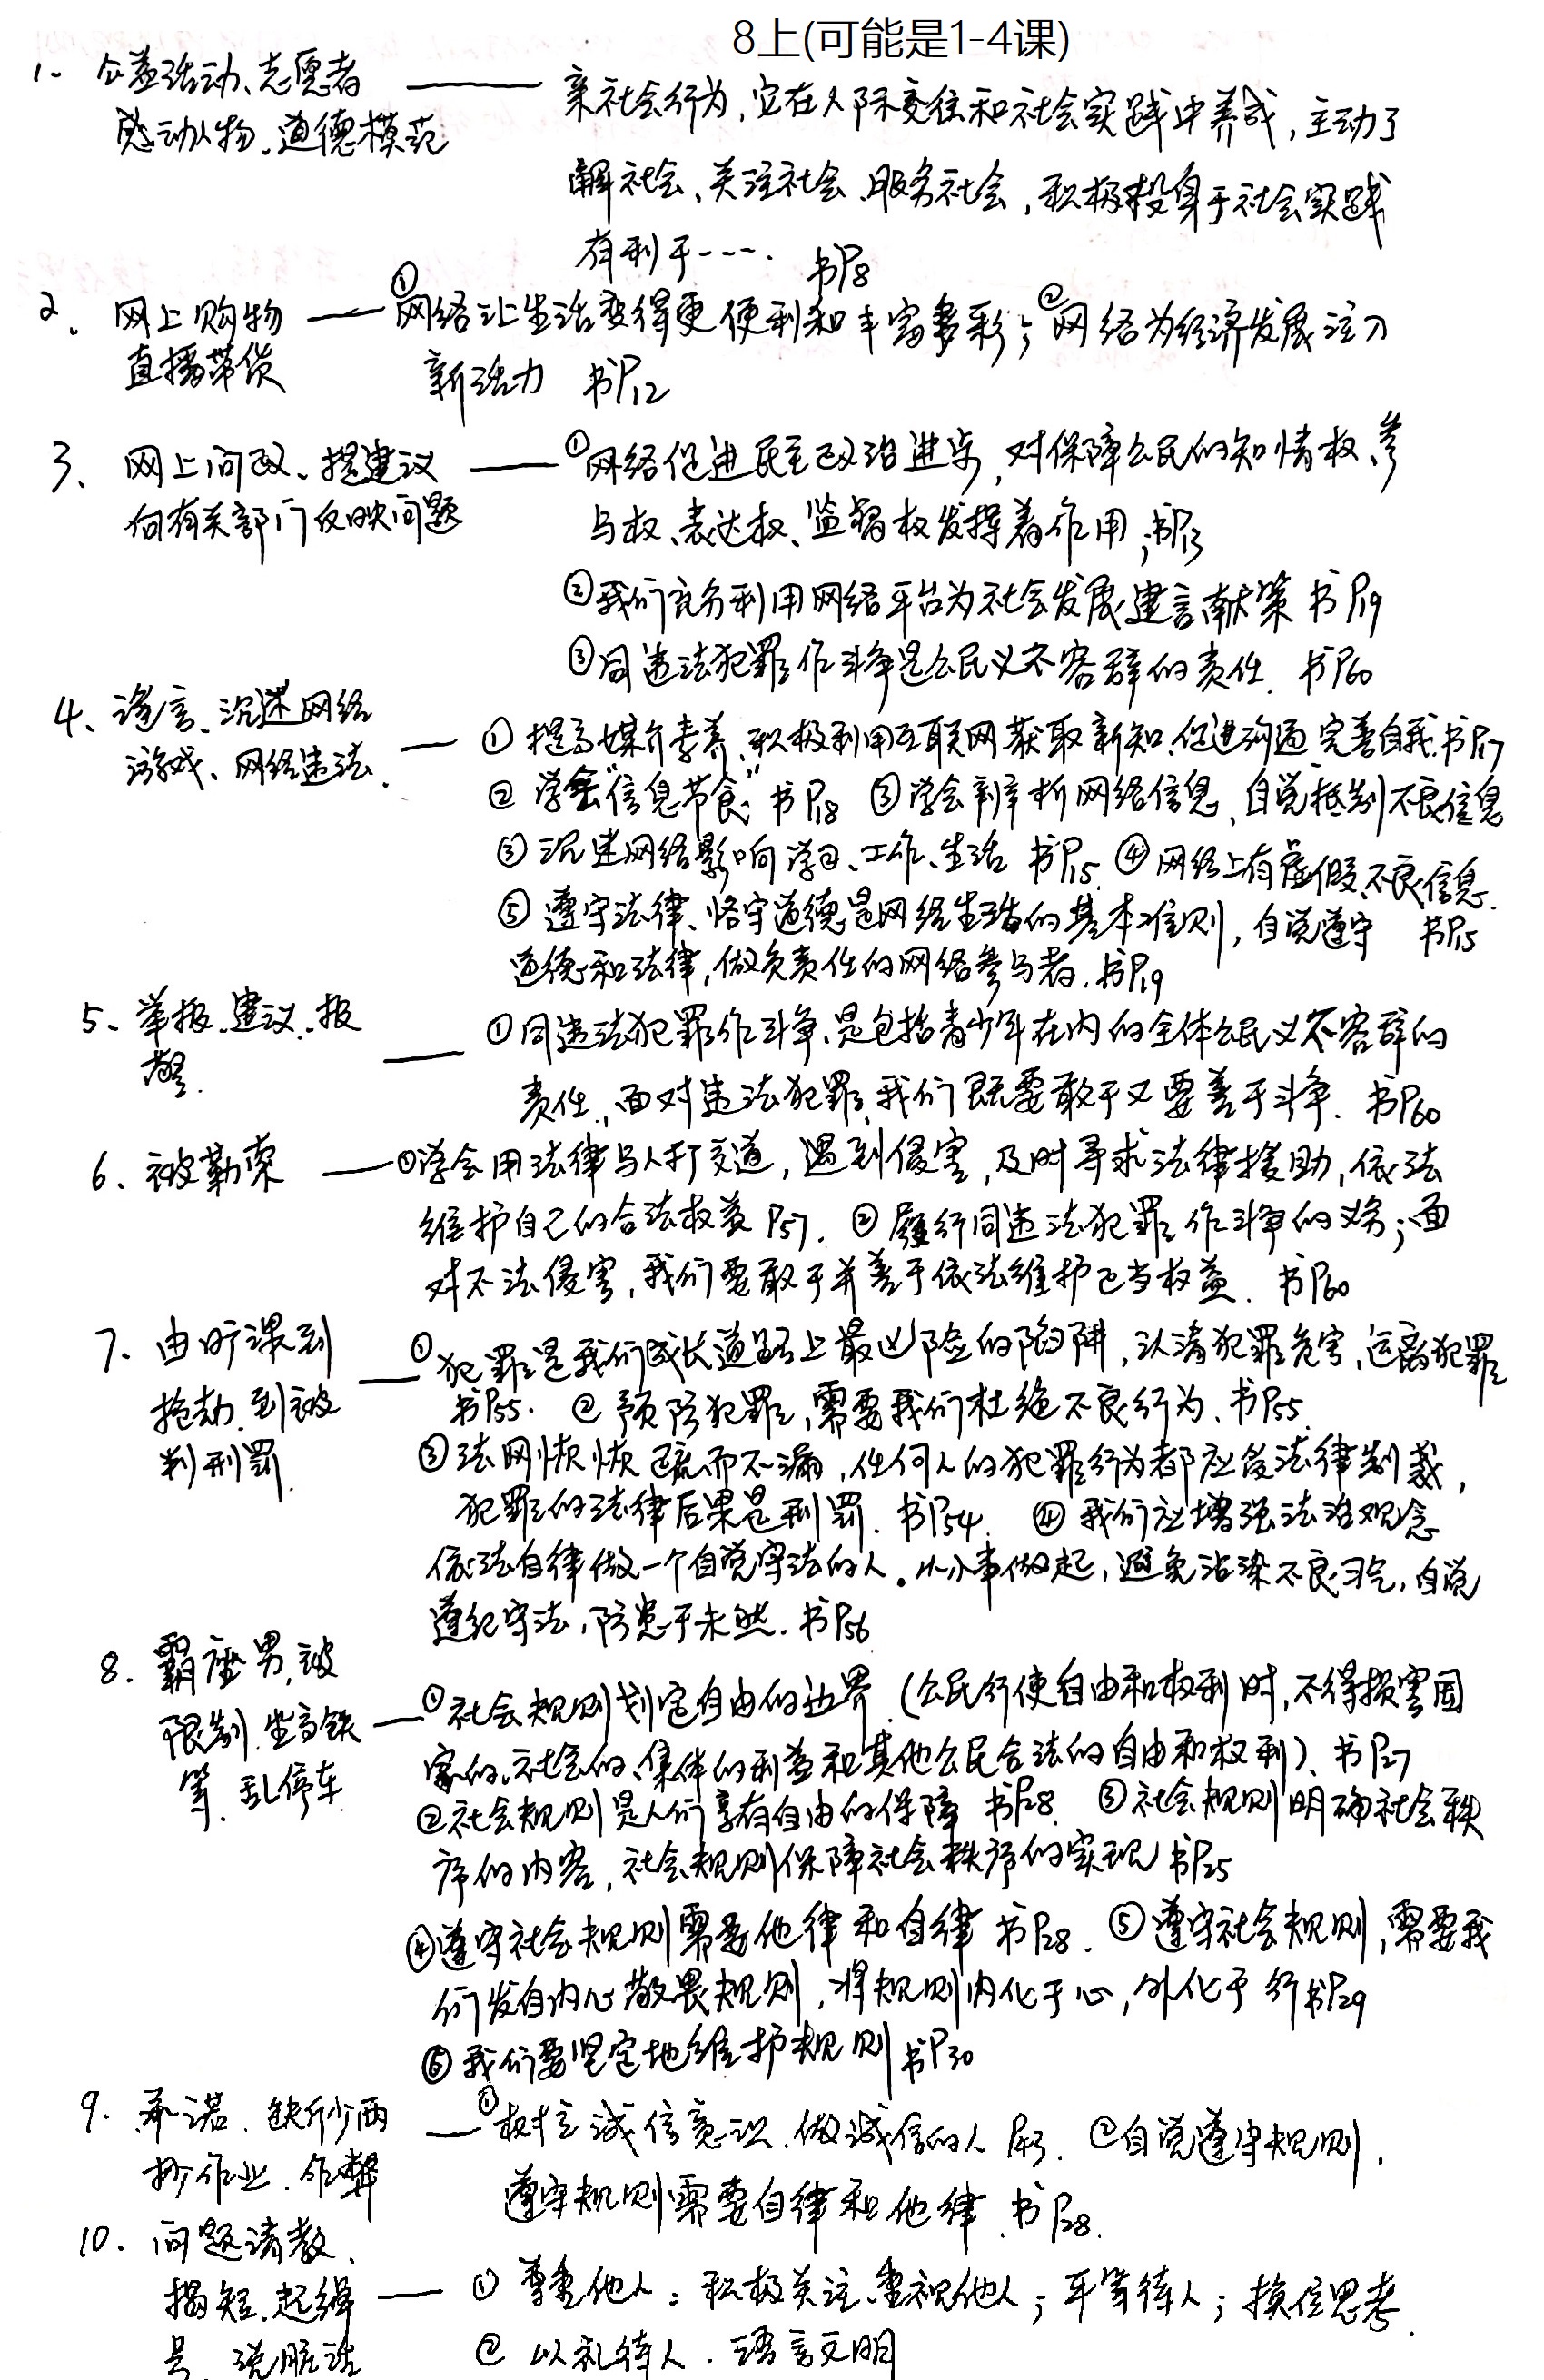 8上(可能是1-4课)
1- 公益活动、志愿者 —— 亲社会行为,它在人际交往和社会实践中养成,主动了
感动人物、道德模范
解社会、关注社会、服务社会,积极投身于社会实践
有利于---. 书P8
2、网上购物 —— ①网络让生活变得更便利和丰富多彩;②网络为经济发展注入
直播带货 新活力 书P12
3、网上问政、提建议 —— ①网络促进民主政治进步,对保障公民的知情权、参
向有关部门反映问题 与权、表达权、监督权发挥着作用;书P13
②我们充分利用网络平台为社会发展建言献策 书P19
③同违法犯罪作斗争是公民义不容辞的责任. 书P60
4、谣言、沉迷网络
游戏、网络违法. —— ①提高媒介素养、积极利用互联网获取新知、促进沟通完善自我.书P17
②学会"信息节食" 书P18 ③学会辨析网络信息,自觉抵制不良信息
③沉迷网络影响学习、工作、生活 书P15. ④网络上有虚假、不良信息.
⑤遵守法律、恪守道德是网络生活的基本准则,自觉遵守 书P15
道德和法律,做负责任的网络参与者.书P19
5、举报.建议.报 —— ①同违法犯罪作斗争、是包括青少年在内的全体公民义不容辞的
警. 责任,面对违法犯罪,我们既要敢于又要善于斗争. 书P60
6、被勒索 —— ①学会用法律与人打交道,遇到侵害,及时寻求法律援助,依法
维护自己的合法权益 P57. ②履行同违法犯罪作斗争的义务;面
对不法侵害,我们要敢于并善于依法维护正当权益. 书P60
7、由旷课到 —— ①犯罪是我们成长道路上最凶险的陷阱,认清犯罪危害,远离犯罪
抢劫.到被 书P55. ②预防犯罪,需要我们杜绝不良行为、书P55.
判刑罚. ③法网恢恢疏而不漏,任何人的犯罪行为都应受法律制裁,
犯罪的法律后果是刑罚. 书P54. ④我们应增强法治观念
依法自律做一个自觉守法的人。从小事做起,避免沾染不良习气,自觉
遵纪守法,防患于未然.书P56
8. 霸座男,被
限制.坐高铁 —— ①社会规则划定自由的边界.(公民行使自由和权利时,不得损害国
等.乱停车. 家的、社会的、集体的利益和其他公民合法的自由和权利)、书P27
②社会规则是人们享有自由的保障 书P28. ③社会规则明确社会秩
序的内容,社会规则保障社会秩序的实现 书P25
④遵守社会规则需要他律和自律 书P28. ⑤遵守社会规则,需要我
们发自内心敬畏规则,将规则内化于心,外化于行书P29
⑥我们要坚定地维护规则 书P30
9. 承诺.缺斤少两 —— ①树立诚信意识.做诚信的人 P43. ②自觉遵守规则.
抄作业.作弊 遵守规则需要自律和他律.书P28.
10. 问题请教、
揭短.起绰 —— ①尊重他人:积极关注.重视他人;平等待人;换位思考.
号.说脏话 ②以礼待人.语言文明